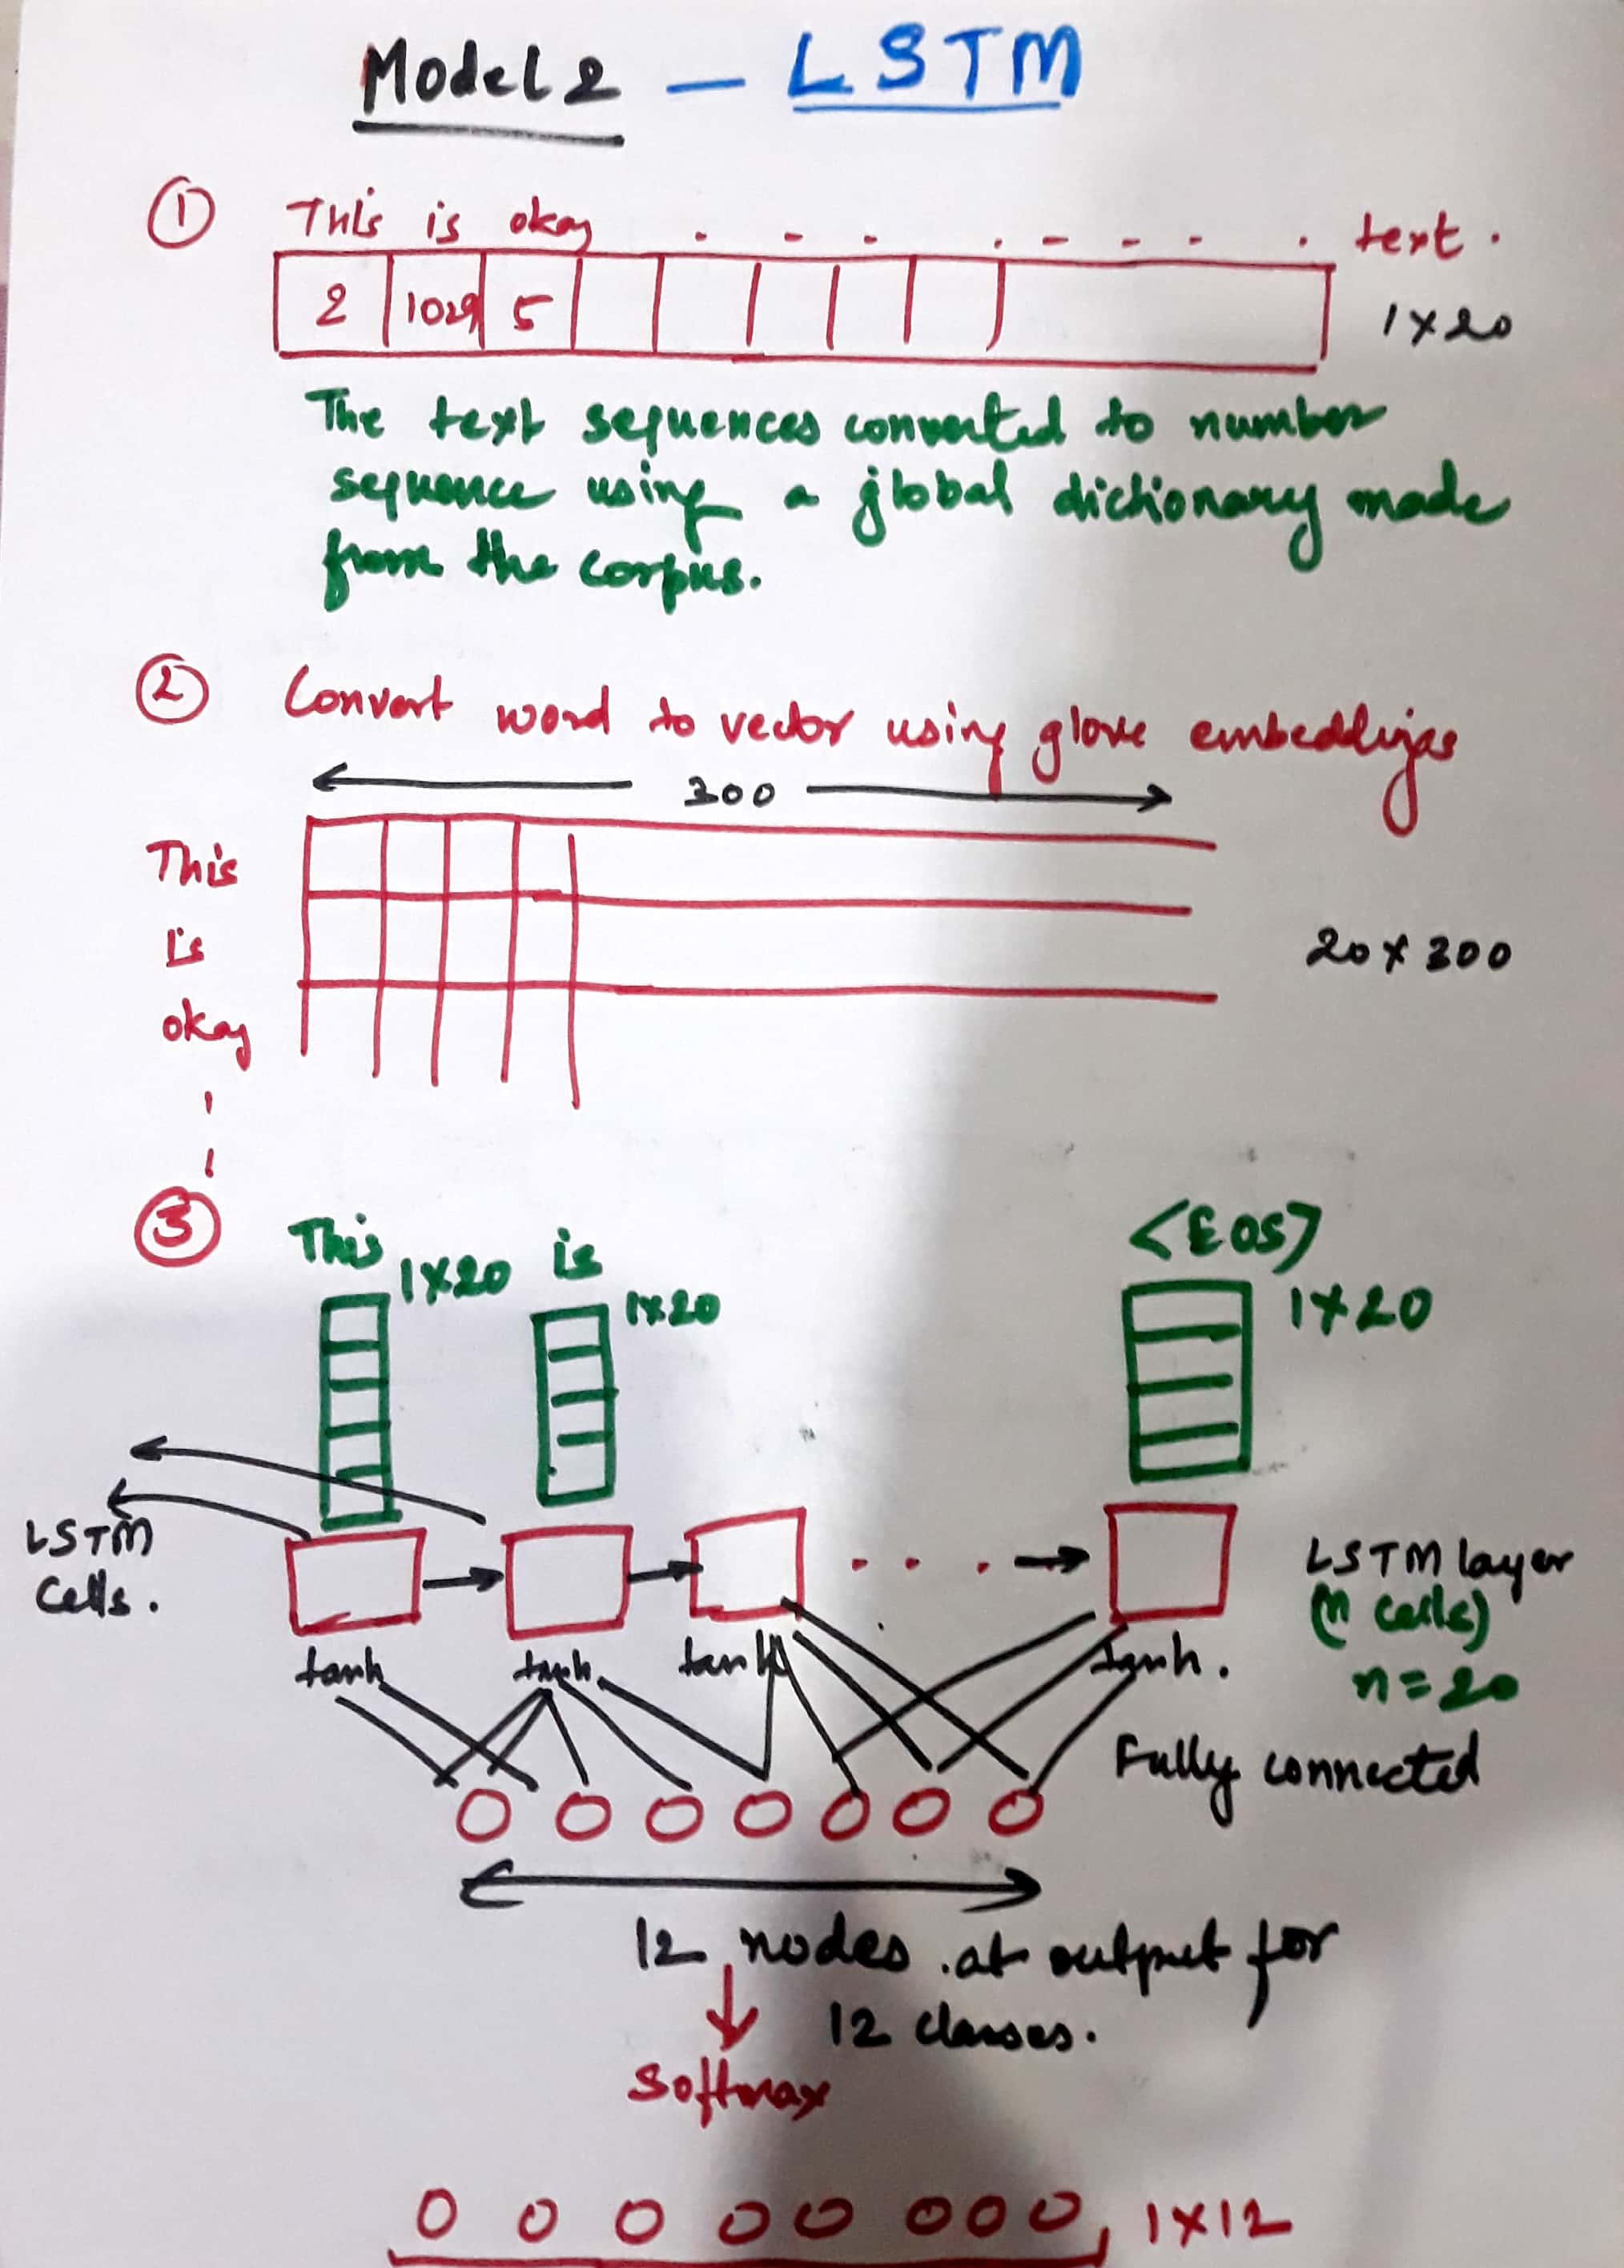 Model 2 — LSTM
① This is okay . - - . - - - . text.
2 1029 5
1x20
The text sequences converted to number
sequence using a global dictionary made
from the corpus.
② Convert word to vector using glove embeddings
300
This
is
okay
20 x 300
③ This 1x20 is 1x20 <EOS> 1x20
LSTM
cells.
LSTM layer
(n cells)
n = 20
tanh tanh tanh tanh.
Fully connected
12 nodes at output for
12 classes.
Softmax
1x12